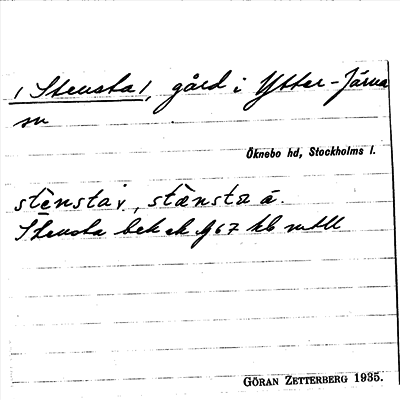 /Stensta/, gård i Ytter-Järna
sn
Öknebo hd, Stockholms l.
stènsta y., stænsta ä.
Stensta bek ek 967 kb mtll
GÖRAN ZETTERBERG 1935.